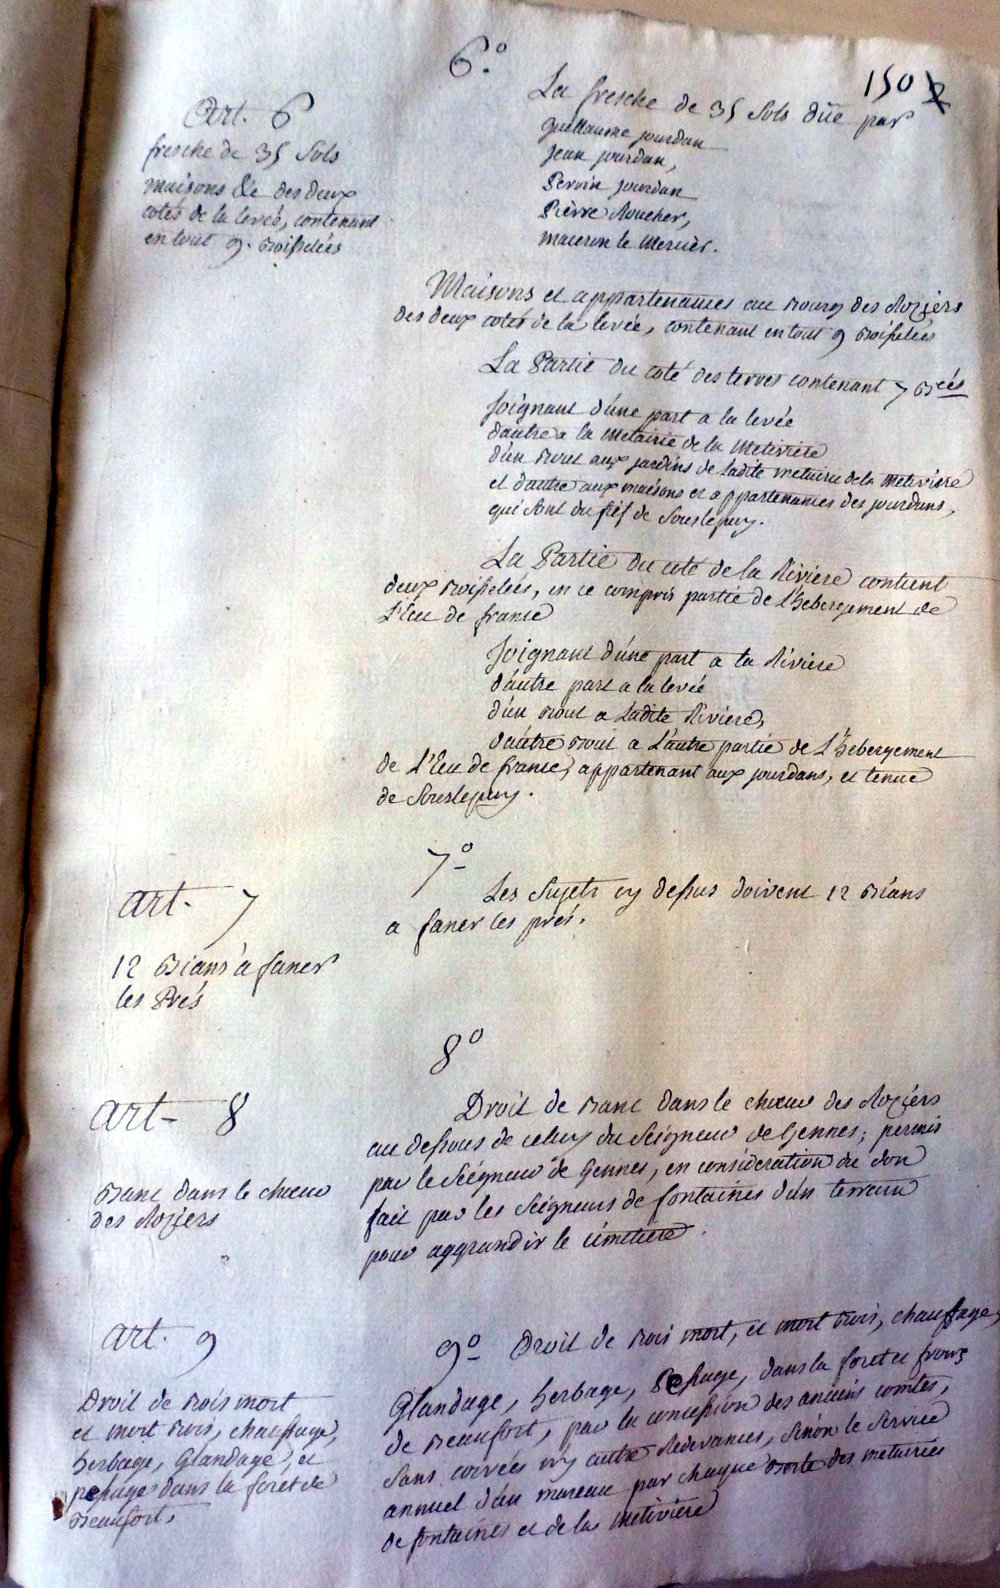 6.o
150
Art. 6
fresche de 35 sols
maisons &c des deux
cotés de la levée, contenant
en tout 9. boisselées
La fresche de 35 sols düe par
guillaume jourdan
jean jourdan,
Perrin jourdan
Pierre Boucher,
maceron le Mercier.
Maisons et appartenances au bourg des Roziers
des deux cotés de la levée, contenant en tout 9 boisselées
La Partie du coté des terres contenant 7 bées
Joignant d'une part a la levée
d'autre a la Metairie de la Metiviere
d'un bout aux jardins de ladite metairie de la metiviere
et d'autre aux maisons et appartenances des jourdans,
qui sont du fief de Souslepuy.
La Partie du coté de la Riviere contient
deux boisselées, en ce compris partie de l'hebergement de
l'Ecu de france
Joignant d'une part a la Riviere
d'autre part a la levée
d'un bout a ladite Riviere,
d'autre bout a l'autre partie de l'hebergement
de l'Ecu de france, appartenant aux jourdans, et tenue
de Souslepuy.
7o
art. 7
12 Bians a faner
les Prés
Les sujets cy dessus doivent 12 Bians
a faner les prés.
8o
art- 8
Banc dans le choeur
des Roziers
Droit de banc dans le choeur des Roziers
au dessous de celuy du Seigneur de Gennes; permis
par le Seigneur de Gennes, en considération du don
fait par les Seigneurs de fontaines d'un terrain
pour aggrandir le cimetiere.
art. 9
Droit de bois mort
et mort bois, chauffage,
herbage, Glandage, et
pessage dans la foret de
Beaufort.
9o Droit de bois mort, et mort bois, chauffage,
Glandage, herbage, Pessage, dans la foret et frouz
de Beaufort, par la concession des anciens comtes,
sans corvées ny autre Redevances, sinon le service
annuel d'un mareau par chaque borte des metairies
de fontaines et de la Metiviere